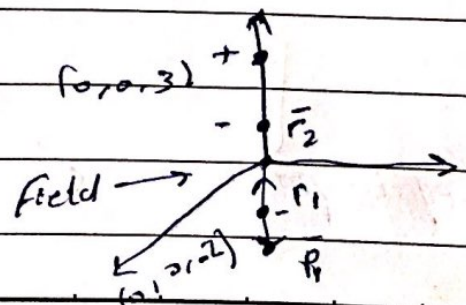 +
(0,0,3)
- r̄₂
field
- r₁
(0,0,-2)
P₁